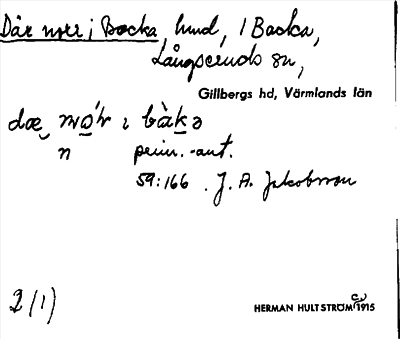 Där norr i Backa, hmd, / Backa,
Långseruds sn,
Gillbergs hd, Värmlands län
dæ nɷ́r ı bàkə
n prim.-ant.
59:166. J. A. Jakobsson
2 (1)
HERMAN HULTSTRÖM 1915